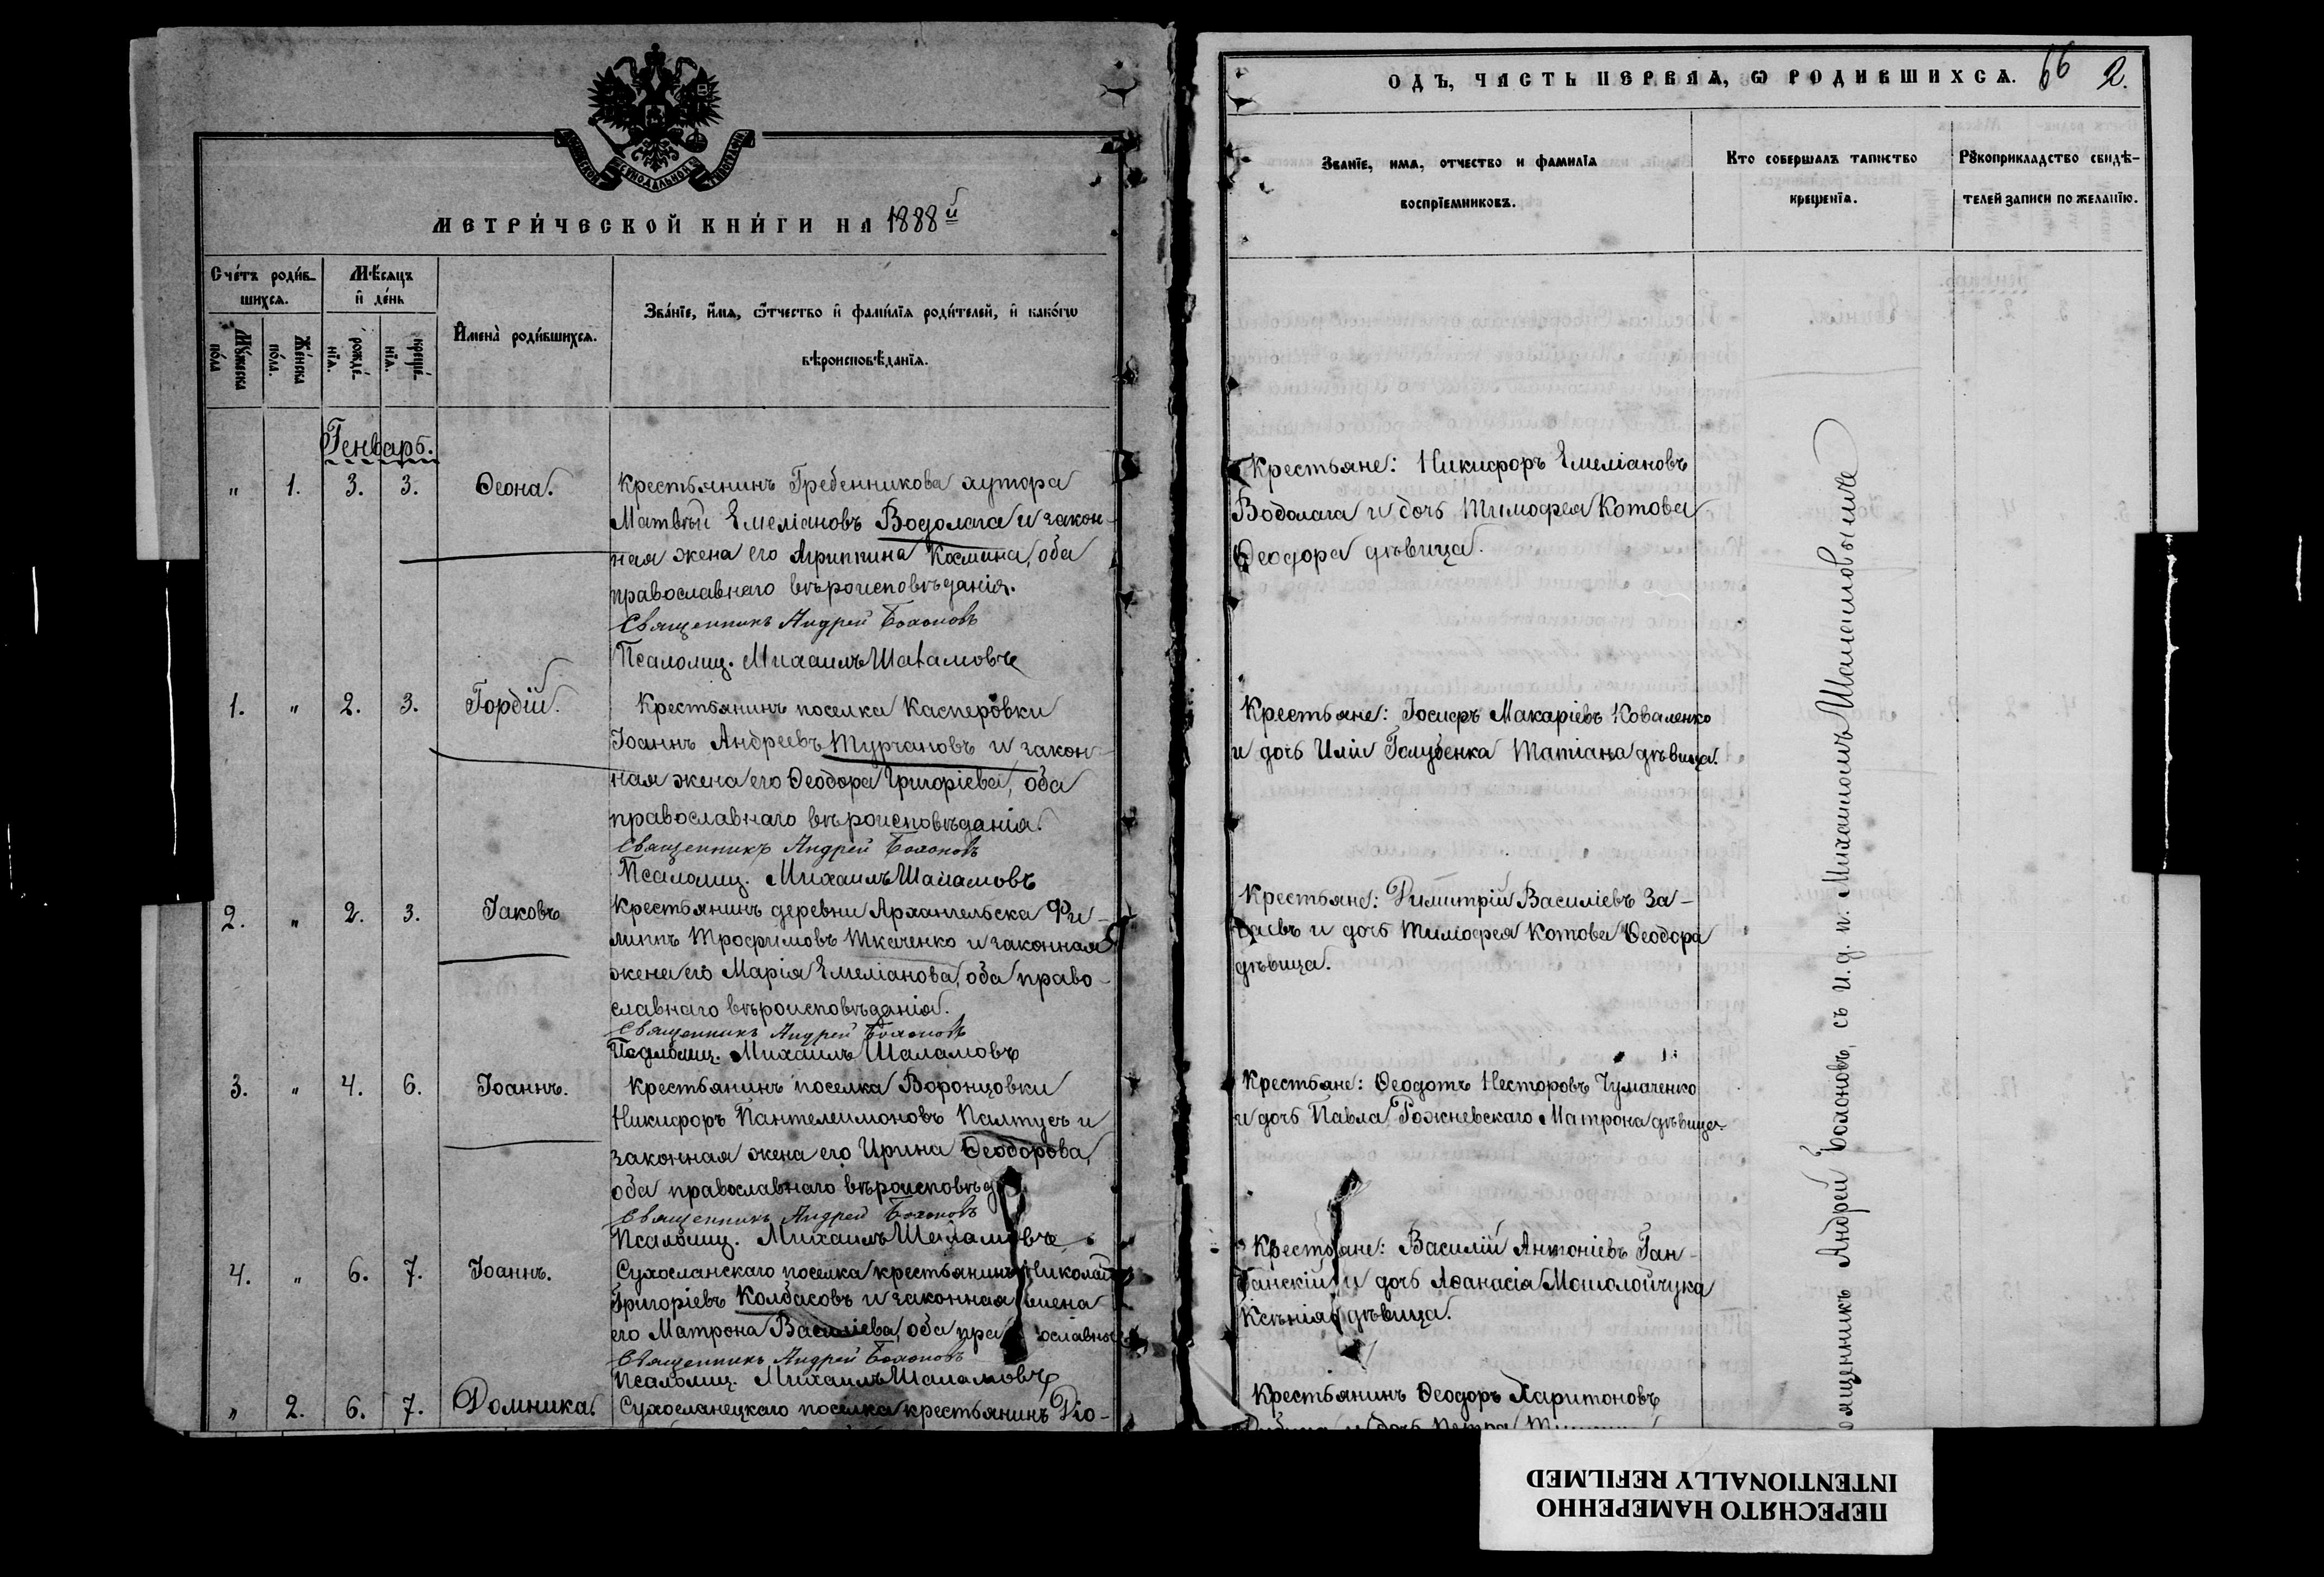 СѴНОДАЛЬНОЙ
МЕТРИ́ЧЕСКОЙ КНИ́ГИ НА 1888й
Сче́тъ роди́в-
шихся.
Мѣ́сяцъ
и҆ де́нь
Мꙋ́жеска
по́ла
Же́нска
по́ла.
рожде́-
нїя.
креще́-
нїя.
И҆мена̀ роди́вшихся.
Зва́нїе, и҆́мя, ѻ҆́тчество и҆ фами́лїя роди́телей, и҆ како́гѡ
вѣроисповѣ́данїя.
Генварь.
" 1. 3. 3. Ѳеона.
Крестьянинъ Гребенникова хутора
Матвѣй Емеліановъ Водолага и закон-
ная жена его Агриппина Космина, оба
православнаго вѣроисповѣданія.
Священникъ Андрей
Псаломщ. Михаилъ Шаламовъ
1. " 2. 3. Гордій.
Крестьянинъ поселка Касперовки
Іоаннъ Андреевъ Турчановъ и закон-
ная жена его Ѳеодора Григоріева, оба
православнаго вѣроисповѣданія.
Священникъ Андрей
Псаломщ. Михаилъ Шаламовъ
2. " 2. 3. Іаковъ
Крестьянинъ деревни Архангельска Фи-
липпъ Трофимовъ Ткаченко и законная
жена его Марія Емеліанова, оба право-
славнаго вѣроисповѣданія.
Священникъ Андрей
Псаломщ. Михаилъ Шаламовъ
3. " 4. 6. Іоаннъ.
Крестьянинъ поселка Воронцовки
Никифоръ Пантелеимоновъ Палтусъ и
законная жена его Ирина Ѳеодорова,
оба православнаго вѣроисповѣд
Священникъ Андрей
Псаломщ. Михаилъ Шаламовъ
4. " 6. 7. Іоаннъ.
поселка крестьянинъ Николай
Григоріевъ Колбасовъ и законная жена
его Матрона Василіева, оба пра ославные
Священникъ Андрей
Псаломщ. Михаилъ Шаламовъ
" 2. 6. 7. Домника.
поселка крестьянинъ
ОДЪ, ЧАСТЬ ПЕРВАЯ, Ѡ РОДИВШИХСЯ. 66 2.
Званїе, имя, отчество и фамилїя
воспрїемниковъ.
Кто совершалъ таинство
крещенїя.
Рꙋкоприкладство свидѣ-
телей записи по желанїю.
Крестьяне: Никифоръ Емеліановъ
Водолага и дочь Тимофея Котова
Ѳеодора дѣвица.
Крестьяне: Іосифъ Макаріевъ Коваленко
и дочь Иліи Голубенка Татіана дѣвица.
Крестьяне: Димитрій Василіевъ За-
и дочь Тимофея Котова Ѳеодора
дѣвица.
Крестьяне: Ѳеодотъ Несторовъ Чумаченко
и дочь Павла Рожневскаго Матрона дѣвица.
Крестьяне: Василій Антоніевъ Ган-
и дочь Аѳанасія
Ксенія дѣвица.
Крестьянинъ Ѳеодоръ Харитоновъ
и дочь Петра
ященникъ Андрей съ и.д.п. Михаиломъ Шаламовымъ
ПЕРЕСНЯТО НАМЕРЕННО
INTENTIONALLY REFILMED